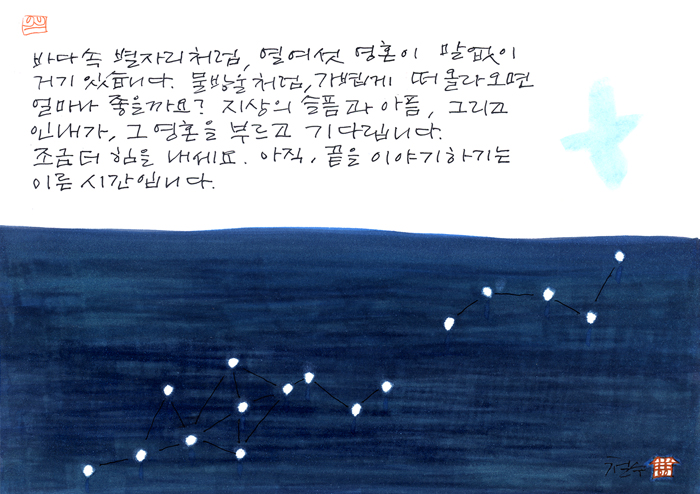 바다속 별자리처럼, 열여섯 영혼이 말없이
거기 있습니다. 물방울처럼, 가볍게 떠올라오면
얼마나 좋을까요? 지상의 슬픔과 아픔, 그리고
인내가, 그 영혼을 부르고 기다립니다.
조금 더 힘을 내세요. 아직, 끝을 이야기하기는
이른 시간입니다.
철수